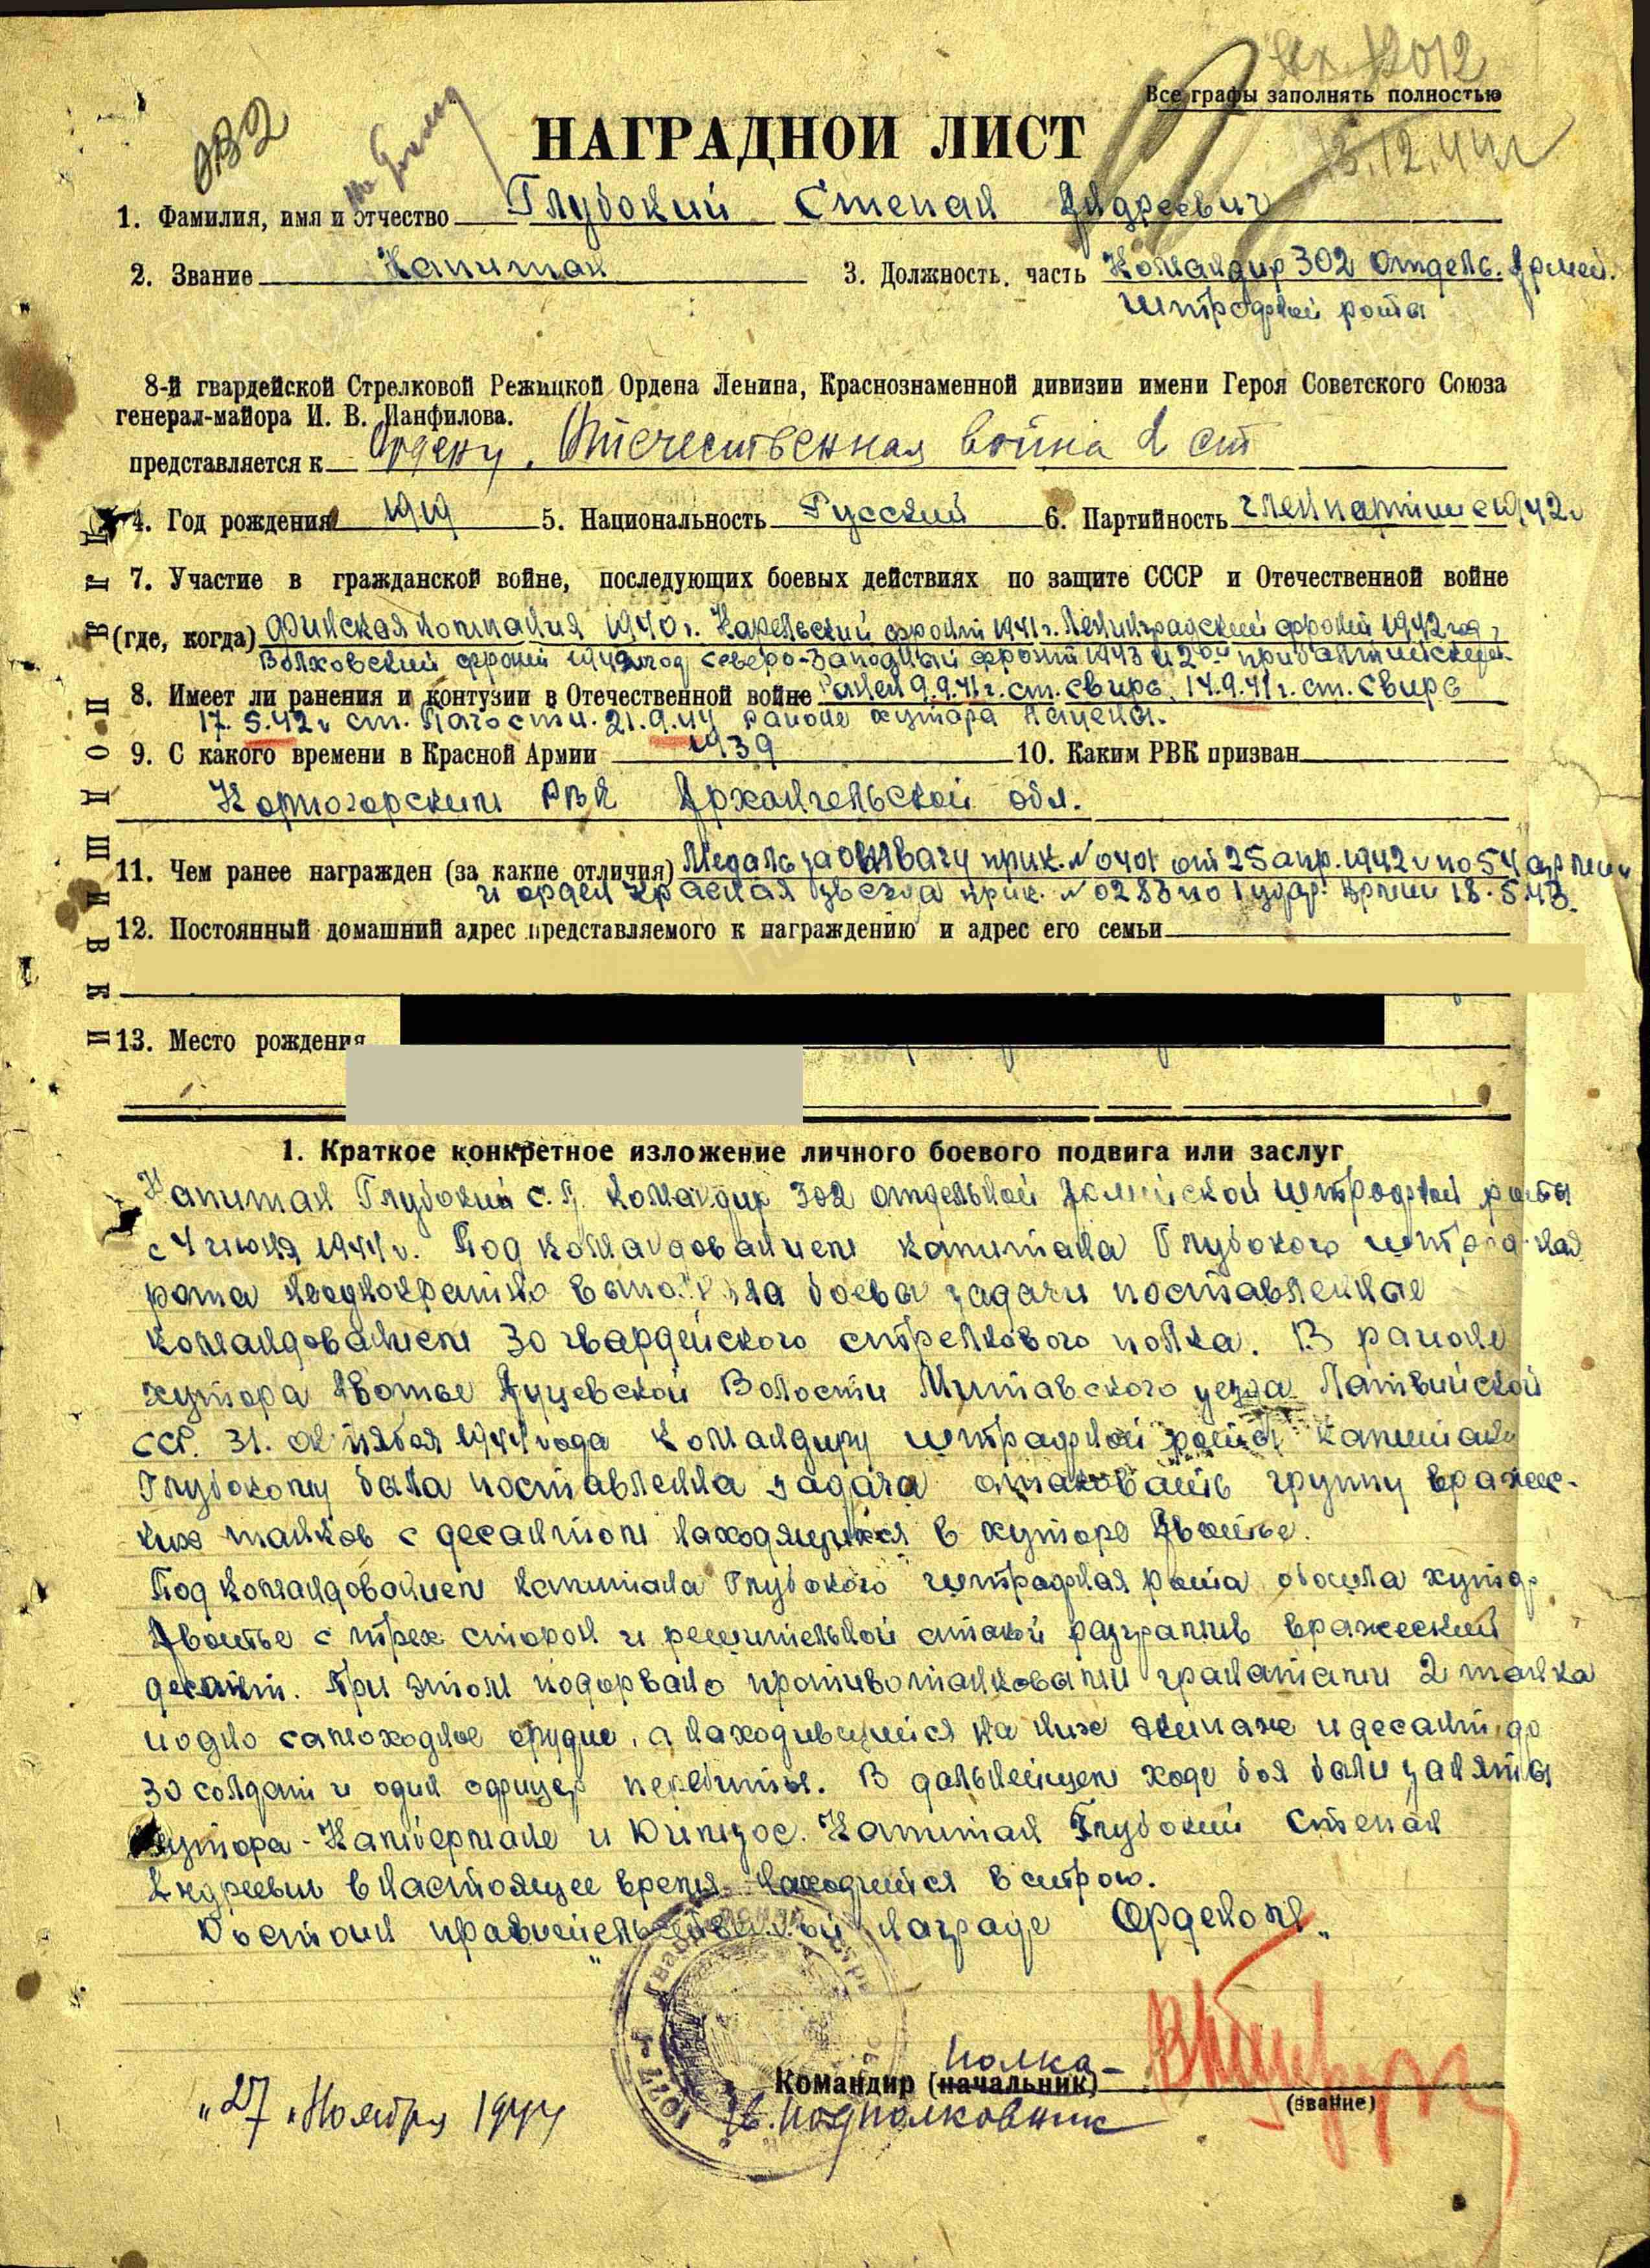 Вх. 12012
Все графы заполнять полностью
НАГРАДНОЙ ЛИСТ
13.12.44г
1. Фамилия, имя и отчество Глубокий Степан Андреевич
2. Звание Капитан 3. Должность, часть Командир 302 отдель. Армей.
штрафной роты
8-й гвардейской Стрелковой Режицкой Ордена Ленина, Краснознаменной дивизии имени Героя Советского Союза
генерал-майора И. В. Панфилова.
представляется к Ордену. Отечественная война 2 ст
4. Год рождения 1919 5. Национальность Русский 6. Партийность член партии с 1942г
7. Участие в гражданской войне, последующих боевых действиях по защите СССР и Отечественной войне
(где, когда) Финская компания 1940г. Карельский фронт 1941г. Ленинградский фронт 1942 год,
Волховский фронт 1942 год северо-Западный фронт 1943 и 2ой прибалтийский
8. Имеет ли ранения и контузии в Отечественной войне Ранен 9.9.41г. ст. Свирь, 14.9.41г. ст. Свирь
17.5.42г ст. Погости. 21.9.44 районе хутора
9. С какого времени в Красной Армии 1939 10. Каким РВК призван
Карпогорским РВК Архангельской обл.
11. Чем ранее награжден (за какие отличия) Медаль за отвагу прик. № 0401 от 25 апр. 1942г по 54 армии
и орден Красная звезда прик. № 0283 по 1 удар. армии 18.5.43.
12. Постоянный домашний адрес представляемого к награждению и адрес его семьи
13. Место рождения
ИВКИ ШДОП ВГК
1. Краткое конкретное изложение личного боевого подвига или заслуг
Капитан Глубокий С.А. командир 302 отдельной Армейской штрафной роты
с 4 июня 1944г. Под командованием капитана Глубокого штрафная
рота неоднократно выполняла боевы задачи поставленные
командованием 30 гвардейского стрелкового полка. В районе
хутора Авотье Ауцевской Волости Митавского уезда Латвийской
ССР. 31. октября 1944 года командиру штрафной роты капитану
Глубокому была поставленна задача отаковать группу вражес-
ких танков с десантом находящихся в хуторе Авотье.
Под командованием капитана Глубокого штрафная рота обошла хутор
Авотье с трех сторон и решительной атакой разгромив вражеский
десант. При этом подорвано противотанковыми гранатами 2 танка
и одно самоходное орудие, а находившийся на них экипаже и десант до
30 солдат и один офицер перебиты. В дальнейшем ходе боя были заняты
хутора - Капбермале и Юмпзос. Капитан Глубокий Степан
Андреевич в настоящее время находится в строю.
Достоин правительственной награде Орденом „
Командир (начальник) полка
(звание)
Гв. подполковник
„27„ Ноября 1944